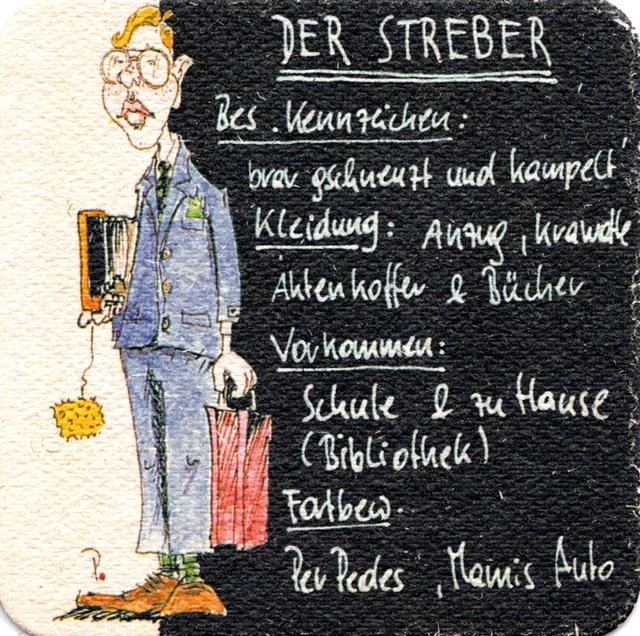 DER STREBER
Bes. Kennzeichen:
brav gschneuzt und kampelt'
Kleidung: Anzug, Krawatte
Aktenkoffer & Bücher
Vorkommen:
Schule & zu Hause
(Bibliothek)
Fortbew.
Per Pedes, Mamis Auto
P.